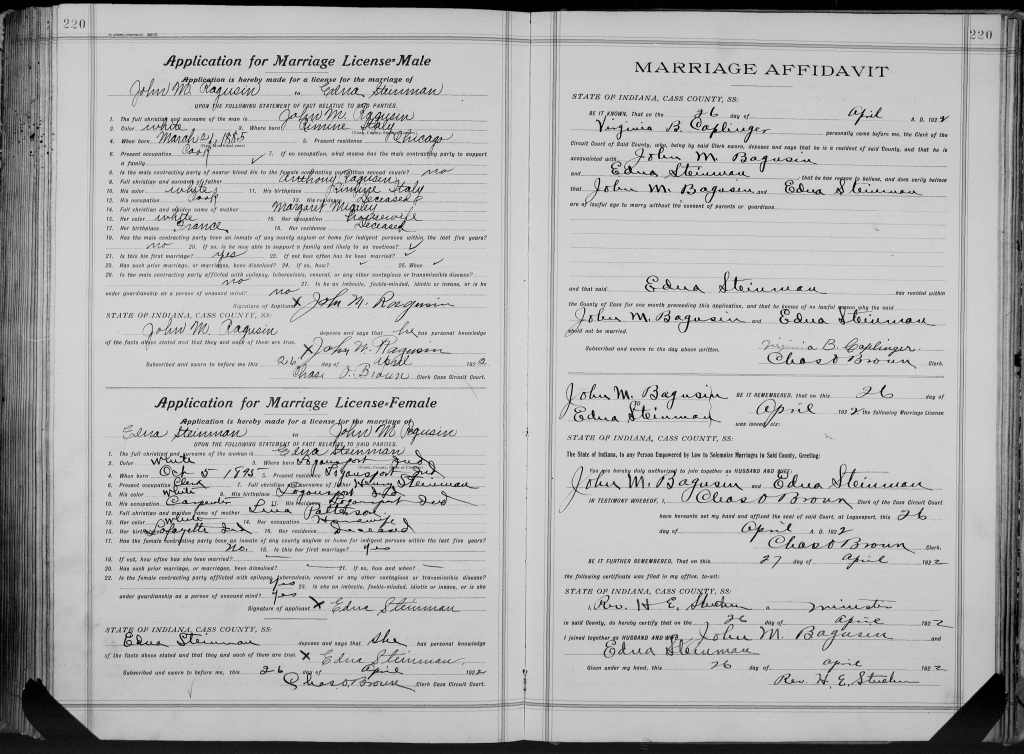 220
Application for Marriage License-Male
Application is hereby made for a license for the marriage of
John M. Ragusin to Edna Steinman
UPON THE FOLLOWING STATEMENT OF FACT RELATIVE TO SAID PARTIES.
1. The full christian and surname of the man is John M. Ragusin
2. Color white 3. Where born Rimine Italy
4. When born March 21, 1885 5. Present residence Chicago
6. Present occupation Cook 7. If no occupation, what means has the male contracting party to support
a family ✓
8. Is the male contracting party of nearer blood kin to the female contracting party than second cousin? no
9. Full christian and surname of father Anthony Ragusin
10. His color white 11. His birthplace Rimine Italy
12. His occupation Cook 13. His residence Deceased
14. Full christian and maiden name of mother Margaret
15. Her color white 16. Her occupation Housewife
17. Her birthplace France 18. Her residence Deceased
19. Has the male contracting party been an inmate of any county asylum or home for indigent persons within the last five years?
no 20. If so, is he now able to support a family and likely to so continue? ✓
21. Is this his first marriage? yes 22. If not how often has he been married? ✓
23. Has such prior marriage, or marriages, been dissolved? 24. If so, how? ✓ 25. When ✓
26. Is the male contracting party afflicted with epilepsy, tuberculosis, venereal, or any other contagious or transmissible disease?
no 27. Is he an imbecile, feeble-minded, idiotic or insane, or is he
under guardianship as a person of unsound mind? no
Signature of Applicant X John M. Ragusin
STATE OF INDIANA, CASS COUNTY, SS:
John M. Ragusin deposes and says that he has personal knowledge
of the facts above stated and that they and each of them are true. X John M. Ragusin
Subscribed and sworn to before me this 26 day of April 1922
Chas. O. Brown Clerk Cass Circuit Court.
Application for Marriage License-Female
Application is hereby made for a license for the marriage of
Edna Steinman to John M Ragusin
UPON THE FOLLOWING STATEMENT OF FACT RELATIVE TO SAID PARTIES.
1. The full christian and surname of the woman is Edna Steinman
2. Color White 3. Where born Logansport Ind
4. When born Oct 5 1895 5. Present residence Logansport Ind
6. Present occupation Clerk 7. Full christian and surname of father Henry Steinman
8. His color White 9. His birthplace Logansport Ind
10. His occupation Carpenter 11. His residence Logansport Ind
12. Full christian and maiden name of mother Patterson
13. Her color White 14. Her occupation Housewife
15. Her birthplace Lafayette Ind 16. Her residence Deceased
17. Has the female contracting party been an inmate of any county asylum or home for indigent persons within the last five years?
No. 18. Is this her first marriage? Yes
19. If not, how often has she been married?
20. Has such prior marriage, or marriages, been dissolved? 21. If so, how and when?
22. Is the female contracting party afflicted with epilepsy, tuberculosis, venereal or any other contagious or transmissible disease?
Yes 23. Is she an imbecile, feeble-minded, idiotic or insane, or is she
under guardianship as a person of unsound mind? Yes
Signature of applicant X Edna Steinman
STATE OF INDIANA, CASS COUNTY, SS:
Edna Steinman deposes and says that she has personal knowledge
of the facts above stated and that they and each of them are true. X Edna Steinman.
Subscribed and sworn to before me, this 26 day of April 1922
Chas O. Brown Clerk Cass Circuit Court.
220
MARRIAGE AFFIDAVIT
STATE OF INDIANA, CASS COUNTY, SS:
BE IT KNOWN, That on the 26 day of April A. D. 1922
Virginia B. Caplinger personally came before me, the Clerk of the
Circuit Court of Said County, who, being by said Clerk sworn, deposes and says that he is a resident of said County, and that he is
acquainted with John M Bagusin
and Edna Steinman, that he has reason to believe, and does verily believe
that John M Bagusin and Edna Steinman
are of lawful age to marry without the consent of parents or guardians
and that said Edna Steinman has resided within
the County of Cass for one month preceding this application, and that he knows of no lawful reason why the said
John M. Bagusin and Edna Steinman
should not be married.
Subscribed and sworn to the day above written. Virginia B. Caplinger.
Chas O Brown Clerk.
John M. Bagusin BE IT REMEMBERED, that on this 26 day of
to
Edna Steinman April 1922 the following Marriage License
was issued, to-wit:
STATE OF INDIANA, CASS COUNTY, SS:
The State of Indiana, to any Person Empowered by Law to Solemnize Marriages in Said County, Greeting:
You are hereby duly authorized to join together as HUSBAND AND WIFE:
John M. Bagusin and Edna Steinman
IN TESTIMONY WHEREOF, I, Chas O Brown Clerk of the Cass Circuit Court
have hereunto set my hand and affixed the seal of said Court, at Logansport, this 26
day of April A. D. 1922
Chas O Brown Clerk.
BE IT FURTHER REMEMBERED, That on this 27 day of April 1922
the following certificate was filed in my office, to-wit:
STATE OF INDIANA, CASS COUNTY, SS:
I, Rev. H E. a minister
in said County, do hereby certify that on the 26 day of April 1922
I joined together as HUSBAND AND WIFE John M. Bagusin and
Edna Steinman
Given under my hand, this 26 day of April 1922
Rev. H. E.